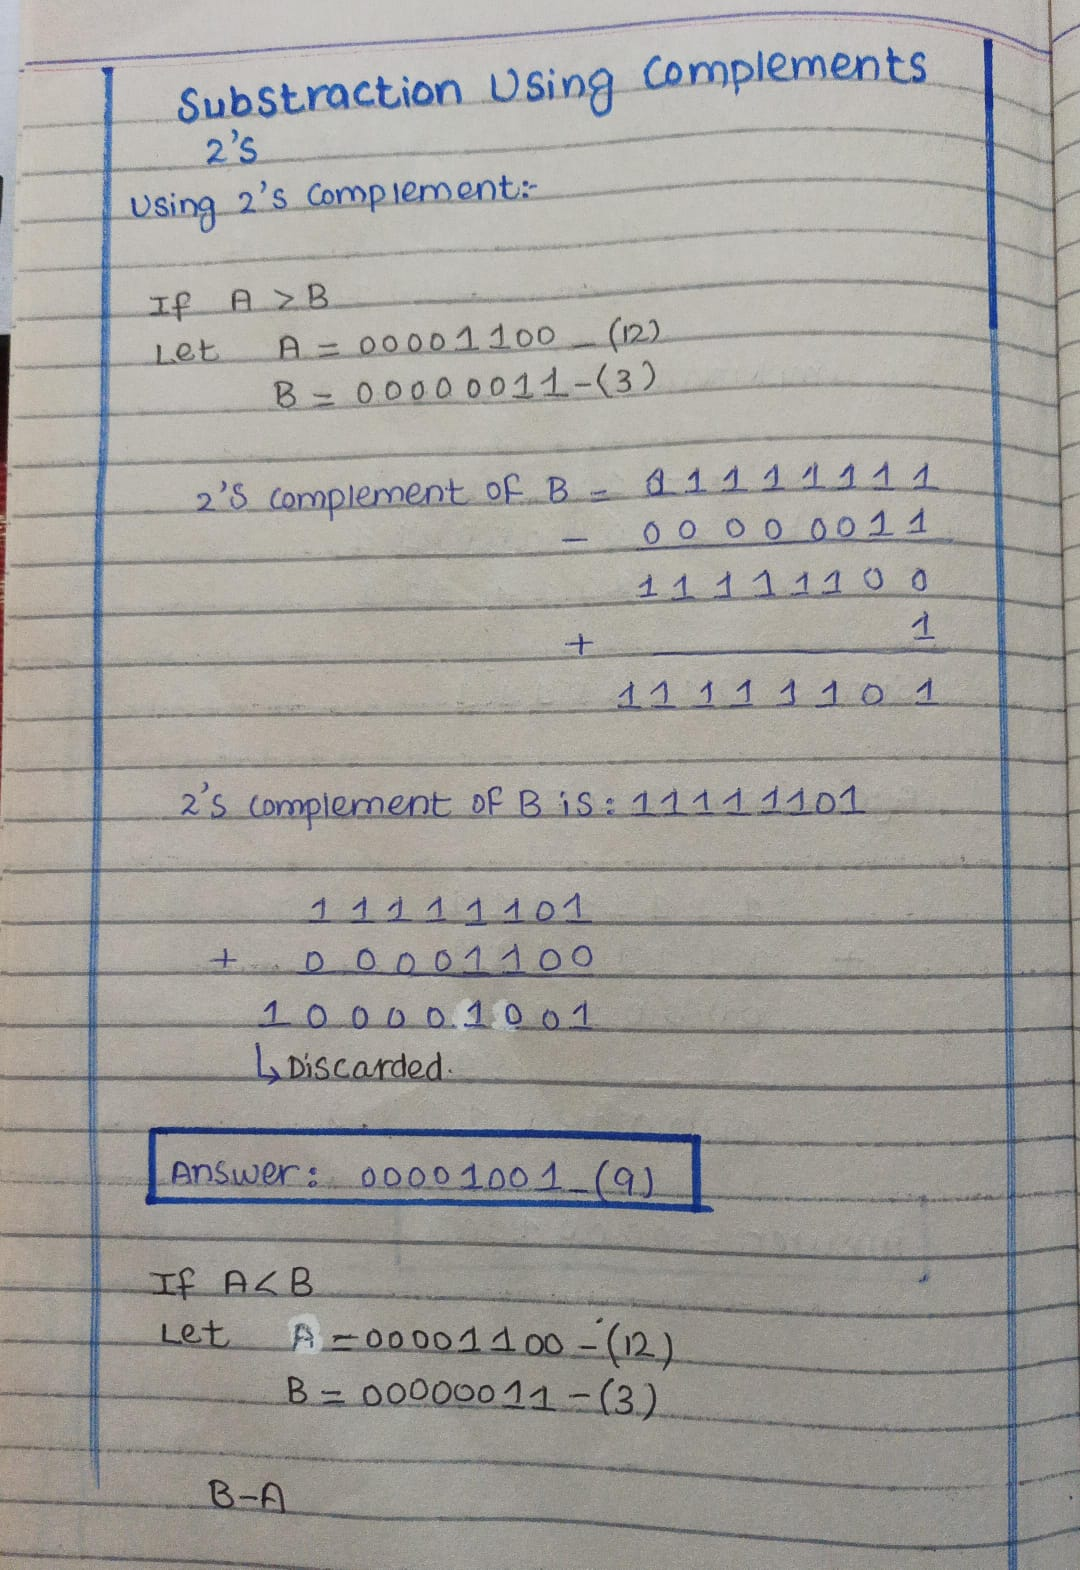 Substraction Using Complements
2's
Using 2's Complement:-
If A > B
Let A = 00001100 - (12)
B = 00000011 - (3)
2's complement of B = 11111111
- 00000011
11111100
+ 1
11111101
2's complement of B is: 11111101
11111101
+ 00001100
100001001
↳ Discarded.
Answer: 00001001 - (9)
If A < B
Let A = 00001100 - (12)
B = 00000011 - (3)
B-A